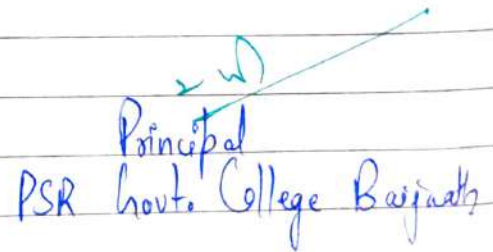 Principal
PSR Govt. College Baijnath